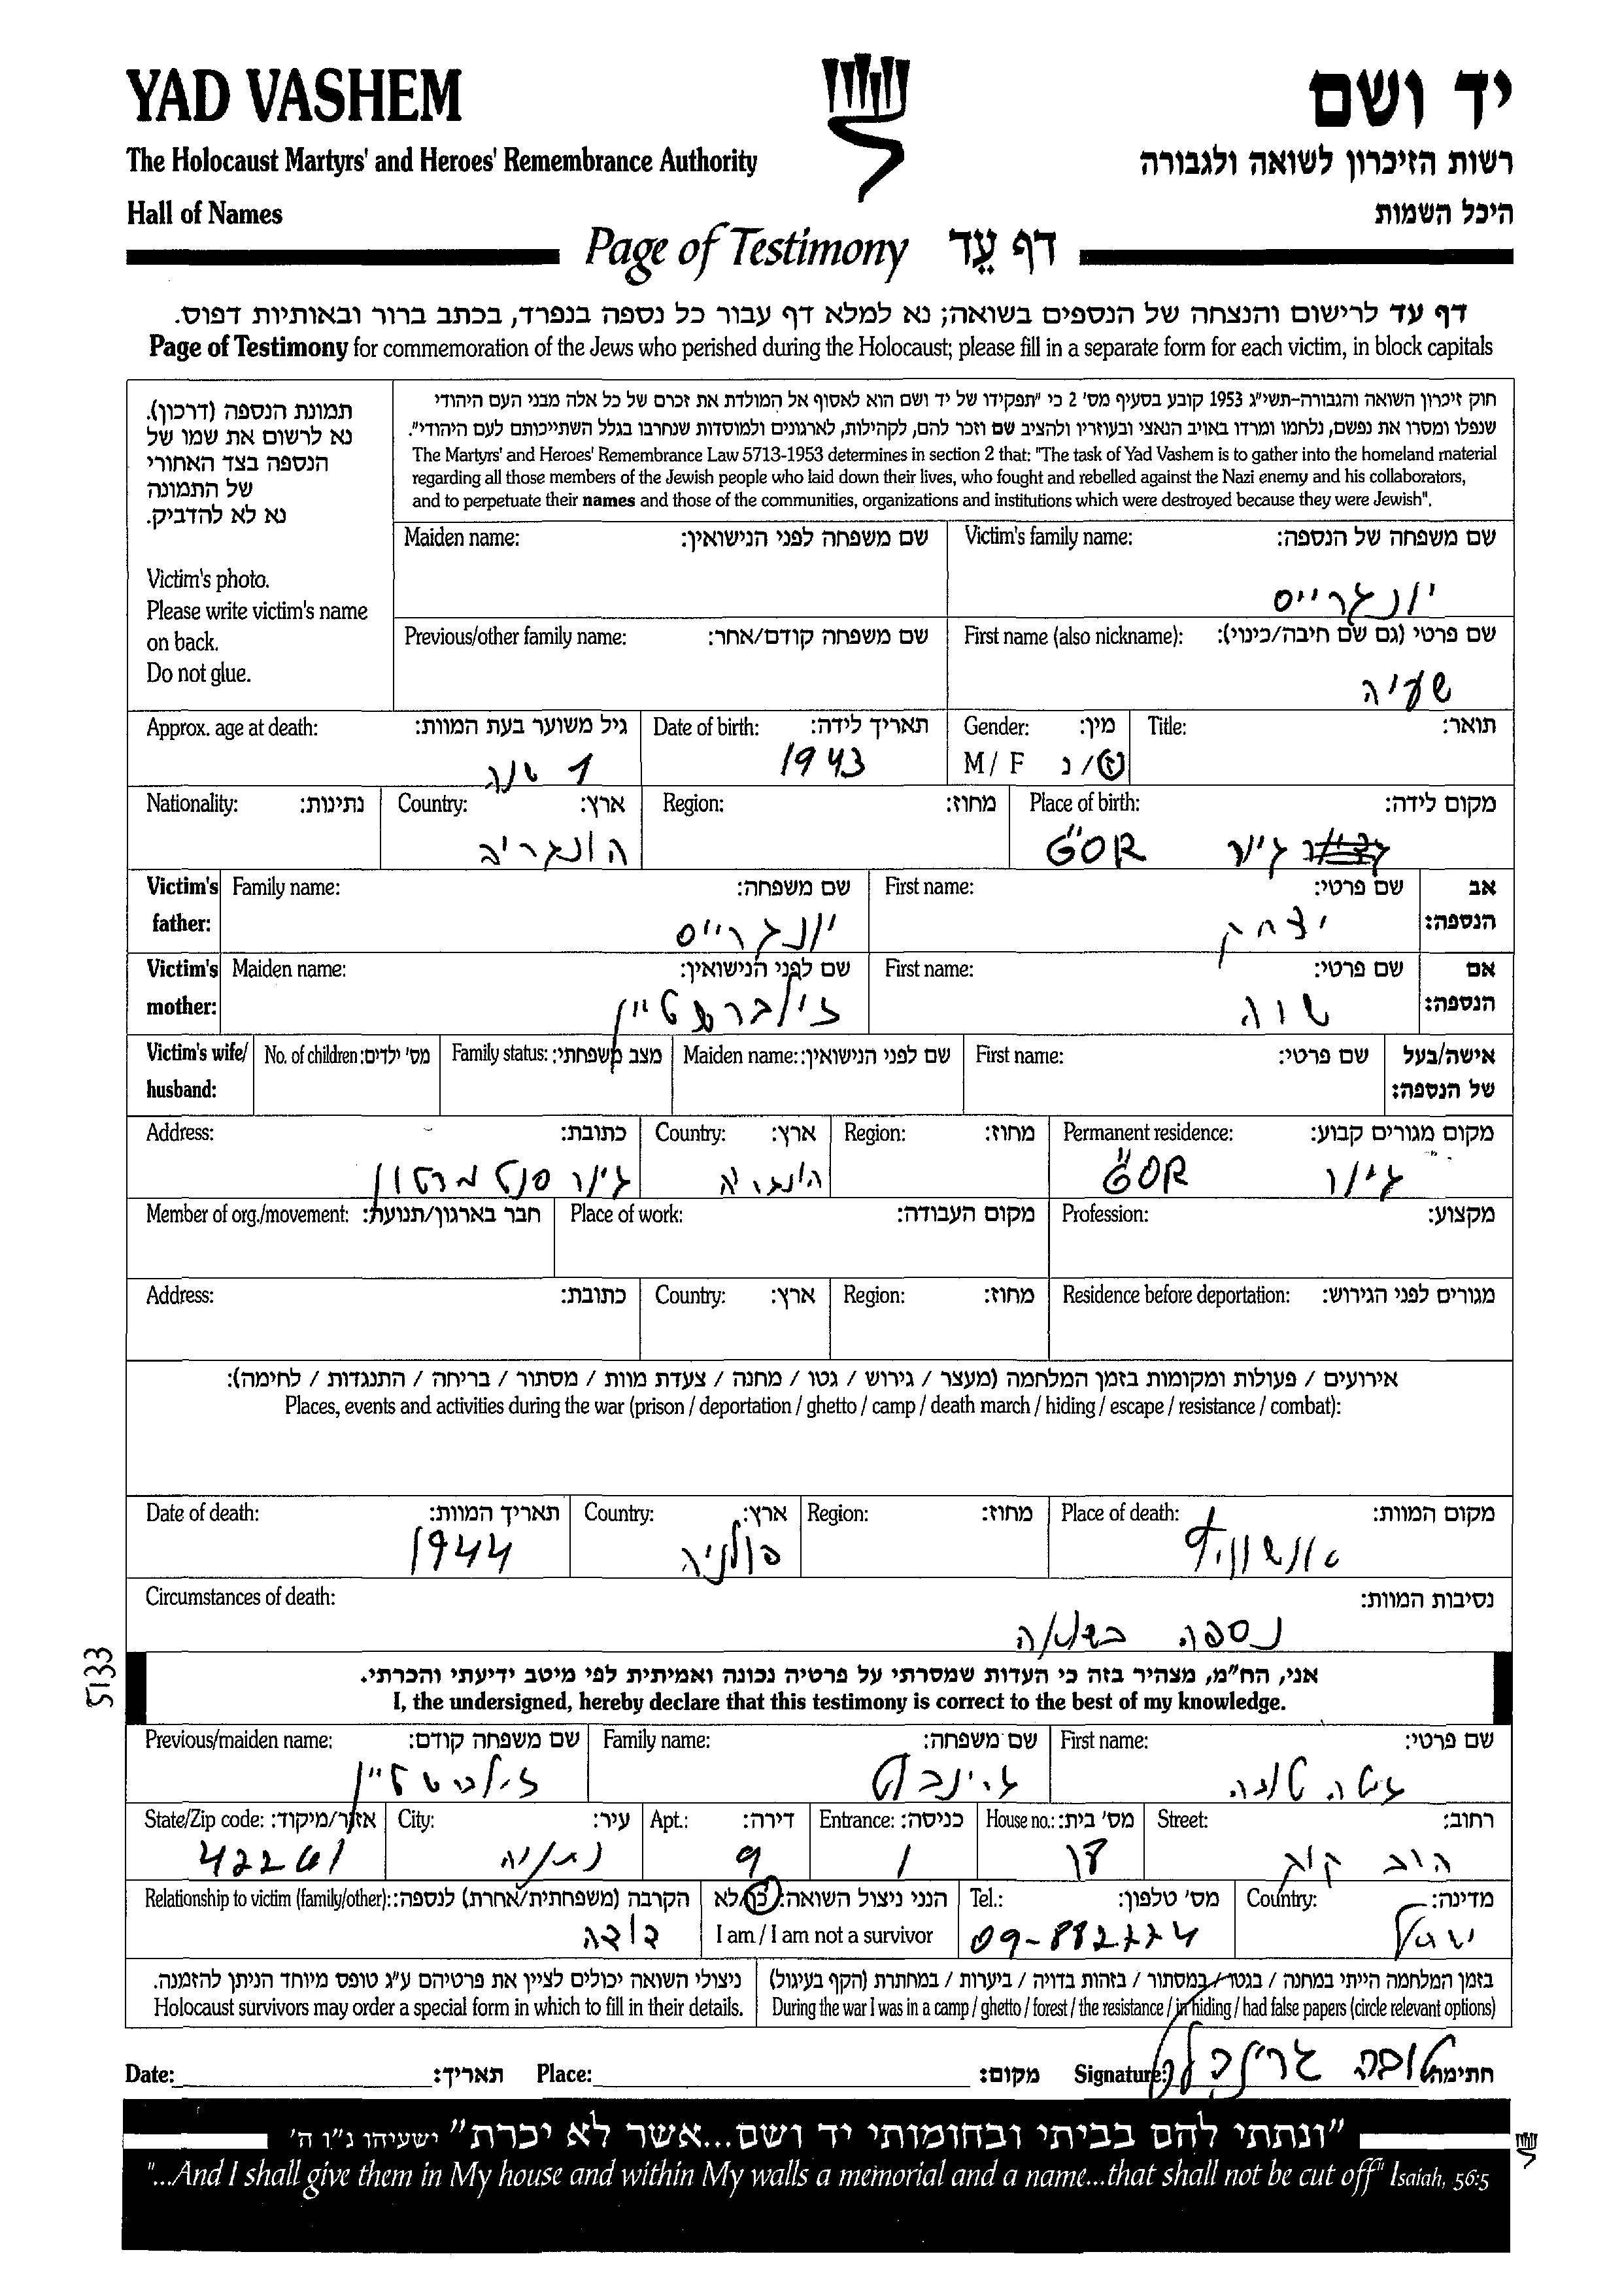 YAD VASHEM
יד ושם
The Holocaust Martyrs' and Heroes' Remembrance Authority
רשות הזיכרון לשואה ולגבורה
Hall of Names
היכל השמות
Page of Testimony דף עֵד
דף עד לרישום והנצחה של הנספים בשואה; נא למלא דף עבור כל נספה בנפרד, בכתב ברור ובאותיות דפוס.
Page of Testimony for commemoration of the Jews who perished during the Holocaust; please fill in a separate form for each victim, in block capitals
תמונת הנספה (דרכון).
נא לרשום את שמו של
הנספה בצד האחורי
של התמונה
נא לא להדביק.
Victim's photo.
Please write victim's name
on back.
Do not glue.
חוק זיכרון השואה והגבורה-תשי"ג 1953 קובע בסעיף מס' 2 כי "תפקידו של יד ושם הוא לאסוף אל המולדת את זכרם של כל אלה מבני העם היהודי
שנפלו ומסרו את נפשם, נלחמו ומרדו באויב הנאצי ובעוזריו ולהציב שם וזכר להם, לקהילות, לארגונים ולמוסדות שנחרבו בגלל השתייכותם לעם היהודי".
The Martyrs' and Heroes' Remembrance Law 5713-1953 determines in section 2 that: "The task of Yad Vashem is to gather into the homeland material
regarding all those members of the Jewish people who laid down their lives, who fought and rebelled against the Nazi enemy and his collaborators,
and to perpetuate their names and those of the communities, organizations and institutions which were destroyed because they were Jewish".
Victim's family name: שם משפחה של הנספה: Maiden name: שם משפחה לפני הנישואין:
יונגרייס
First name (also nickname): שם פרטי (גם שם חיבה/כינוי): Previous/other family name: שם משפחה קודם/אחר:
שעיה
Title: תואר: Gender: מין: Date of birth: תאריך לידה: Approx. age at death: גיל משוער בעת המוות:
M / F ז/נ 1943 1 שנה
Place of birth: מקום לידה: Region: מחוז: Country: ארץ: Nationality: נתינות:
גיור GÖR הונגריה
אב הנספה: Victim's father: First name: שם פרטי: Family name: שם משפחה:
יצחק יונגרייס
אם הנספה: Victim's mother: First name: שם פרטי: Maiden name: שם לפני הנישואין:
שוה זילברשטיין
אישה/בעל של הנספה: Victim's wife/husband: First name: שם פרטי: Maiden name: שם לפני הנישואין: Family status: מצב משפחתי: No. of children: מס' ילדים:
Permanent residence: מקום מגורים קבוע: Region: מחוז: Country: ארץ: Address: כתובת:
גיור GÖR הונגריה גיור סנט מרטון
Profession: מקצוע: Place of work: מקום העבודה: Member of org./movement: חבר בארגון/תנועת:
Residence before deportation: מגורים לפני הגירוש: Region: מחוז: Country: ארץ: Address: כתובת:
אירועים / פעולות ומקומות בזמן המלחמה (מעצר / גירוש / גטו / מחנה / צעדת מוות / מסתור / בריחה / התנגדות / לחימה):
Places, events and activities during the war (prison / deportation / ghetto / camp / death march / hiding / escape / resistance / combat):
Place of death: מקום המוות: Region: מחוז: Country: ארץ: Date of death: תאריך המוות:
אושוויץ פולניה 1944
Circumstances of death: נסיבות המוות:
נספה בשואה
5133
אני, הח"מ, מצהיר בזה כי העדות שמסרתי על פרטיה נכונה ואמיתית לפי מיטב ידיעתי והכרתי.
I, the undersigned, hereby declare that this testimony is correct to the best of my knowledge.
First name: שם פרטי: Family name: שם משפחה: Previous/maiden name: שם משפחה קודם:
גרינבלט זילברשטיין
Street: רחוב: House no.: מס' בית: Entrance: כניסה: Apt.: דירה: City: עיר: State/Zip code: אזור/מיקוד:
הרב קוק 1 9 נתניה 42261
Country: מדינה: Tel.: מס' טלפון: הנני ניצול השואה: כן/לא I am / I am not a survivor Relationship to victim (family/other): הקרבה (משפחתית/אחרת) לנספה:
ישראל 09-882774 דודה
בזמן המלחמה הייתי במחנה / בגטו / במסתור / בזהות בדויה / ביערות / במחתרת (הקף בעיגול)
During the war I was in a camp / ghetto / forest / the resistance / in hiding / had false papers (circle relevant options)
ניצולי השואה יכולים לציין את פרטיהם ע"ג טופס מיוחד הניתן להזמנה.
Holocaust survivors may order a special form in which to fill in their details.
Date: תאריך: Place: מקום: Signature: גרינבלט חתימה
"ונתתי להם בביתי ובחומותי יד ושם...אשר לא יכרת" ישעיהו נ"ו ה'
"...And I shall give them in My house and within My walls a memorial and a name...that shall not be cut off" Isaiah, 56:5